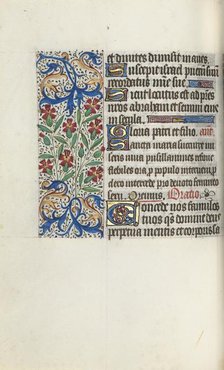 et divites dimisit inanes
Suscepit israel puerum suum
recordatus mie sue
Sicut locutus est ad patres
nros abraham et semini eius
in secula.
Gloria patri et filio. ant.
Sancta maria succurre mi
seris iuva pusillanimes refove
flebiles ora pro populo interveni pro
clero intercede pro devoto femineo
sexu. Oremus. Oratio.
Concede nos famulos
tuos qs domine deus
perpetua mentis et corporis sa